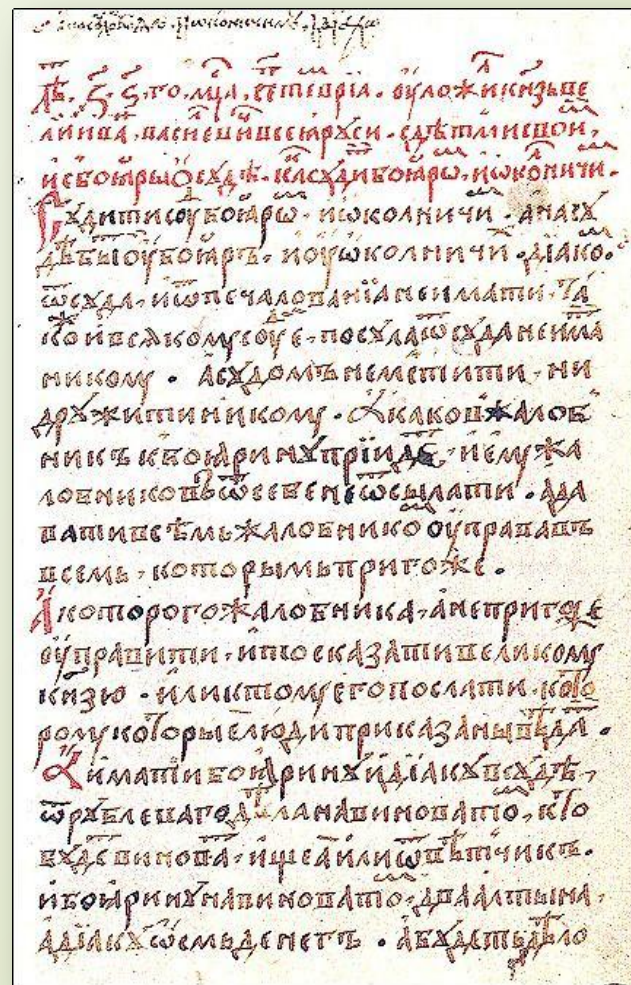 лѣⷮ ҂ЗЅ҃ го мⷭ҇ца сеⷫ҇тевріа оуложиⷧ кн҃зь ве
ликїи иваⷩ васиⷧевиⷱ҇ всеѧ руси с дѣтⷨи свои
и с боѧры ѡ судѣ каⷦ҇ судиⷮ боѧроⷨ и ѡкоⷧничиⷨ
Судити соуⷣ боѧроⷨ и ѡколничиⷨ а на су
дѣ быⷮ оу боѧръ и оу ѡколничиⷯ діакоⷨ
ѿ суда и ѿ печалованїа не имати та
ко и всякому соуⷣе посула ѿ суда не има
никому а судомъ не мстити ни
дружити никому А каков жалоб
никъ к боѧрину прїидеⷮ и ему жа
лобниковъ ѿ себе не ѿсылати а да
вати всѣмь жалобникоⷨ оуправа въ
всемь которымь пригоже
А которого жалобника а не пригоже
оуправити и то сказати великому
кнѧзю или к тому его послати кото
рому которые люди приказаны вѣдаⷮ
А имати боѧрину и діаку в судѣ
ѿ рублеваго дѣла на виноватоⷨ кто
будеⷮ виноваⷮ ищеа или ѿвѣтчикъ
и боѧрину на виноватоⷨ два алтына
а діаку ѡсмь денегъ а будеть дѣло